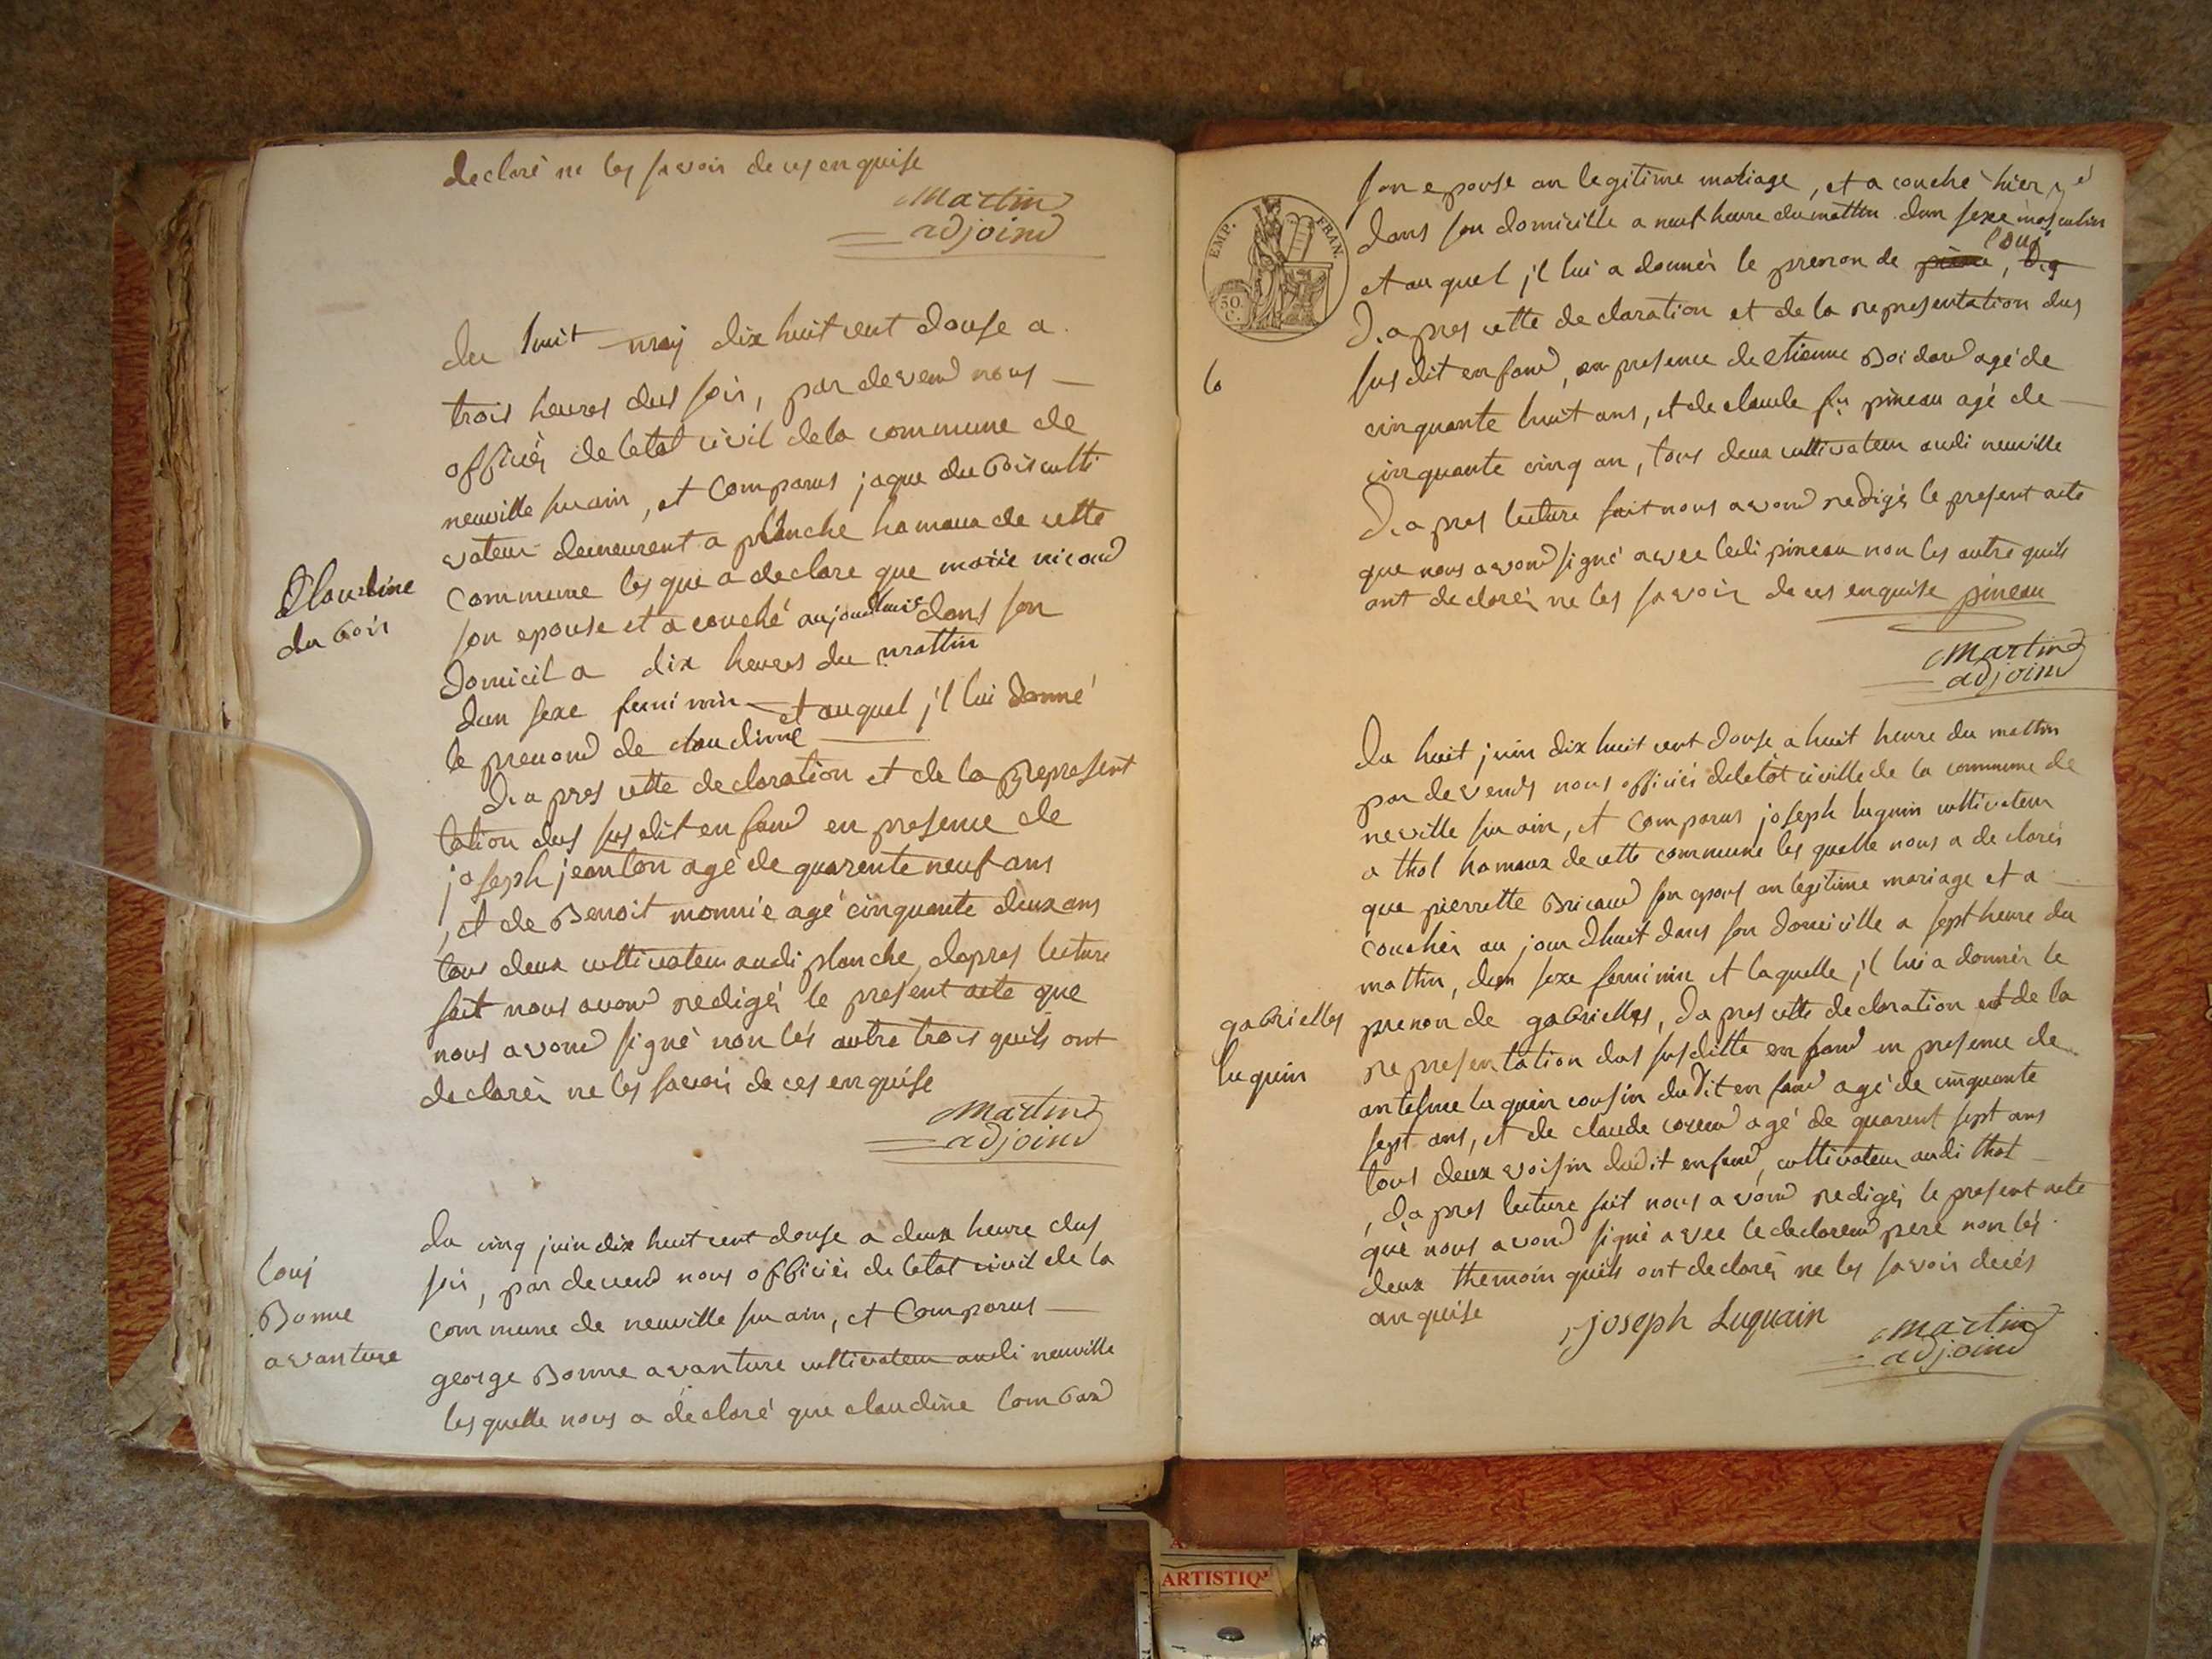 declaré ne les savoir de ces enquise
Martin
adjoind
du huit may dix huit cent douse a
trois heures dus soir, par devend nous
officièr de letat civil dela commune de
neuville sur ain, et Comparus jaque du Bois culti
vateur demeurent a planche hamaux de cette
Commune les que a declare que marie nicoud
son epouse et a couché aujourdhuis dans son
Domicil a dix heures du mattin
dun sexe feminin et auquel j'l lui donné
le prenond de claudinne
D'a pres cette declaration et de la represent
tation dus susdit enfand en presence de
joseph jeanton agé de quarente neuf ans
, et de Benoit monnié agé cinquante deux ans
tous deux cultivateur audi planche, dapres lecture
fait nous avond redigé le present acte que
nous avond signé non lés autre trois quils ont
declarér ne les savoir de ces enquise
Martind
adjoind
Claudine
du Bois
du cinq juin dix huit cent douse a deux heure dus
soir, par devend nous officièr de letat civil de la
commune de neuville sur ain, et Comparus
george Bonne avanture cultivateur audi neuville
lesquelle nous a declaré que claudine Combad
Louj
Bonne
avanture
EMP. FRAN.
50.
C.
son epouse an legitime mariage, et a couché hier
dans son domicille a neuf heure du mattin dun sexe masculin
Louj
et au quel j'l lui a donnér le prenon de
D'a pres cette declaration et de la representation dus
susdit enfand, en presence de etienne Boidard agé de
cinquante huit ans, et de claude pineau agé de
cinquante cinq an, tous deux cultivateur audi neuville
D'a pres lecture fait nous avond redigér le present acte
que nous avond signé avec ledi pineau non les autre quils
ont declarér ne les savoir de ces enquise pineau
Martind
adjoind
Du huit juin dix huit cent douse a huit heure du mattin
par devends nous officièr de letat civille de la commune de
neville sur ain, et Comparus joseph luquin cultivateur
a thol hamaux de cette commune les quelle nous a declarér
que pierrette Bricaud son epous an legitime mariage et a
couchér au jourdhuit dans son domicille a sept heure du
mattin, dun sexe feminin et laquelle j'l lui a donnér le
prenon de gabrielles, da pres cette declaration et de la
representation dus susditte enfand en presence de
antelme luquin cousin dudit enfand agé de cinquante
sept ans, et de claude agé de quarent sept ans
tous deux voisin dudit enfand, cultivateur audi thol
, da pres lecture fait nous avond redigér le present acte
que nous avond signé avec le declarend pere non lés
deux themoin quils ont declarér ne les savoir decés
anquise
joseph Luquain
Martind
adjoind
gabrielles
luquin
ARTISTIQ